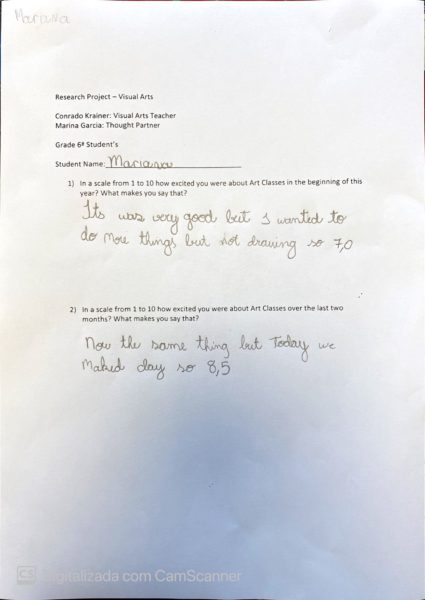 Mariana
Research Project – Visual Arts
Conrado Krainer: Visual Arts Teacher
Marina Garcia: Thought Partner
Grade 6# Student's
Student Name: Mariana
1) In a scale from 1 to 10 how excited you were about Art Classes in the beginning of this
year? What makes you say that?
Its was very good but I wanted to
do more things but not drawing so 7,0
2) In a scale from 1 to 10 how excited you were about Art Classes over the last two
months? What makes you say that?
Now the same thing but Today we
maked day so 8,5
CS Digitalizada com CamScanner